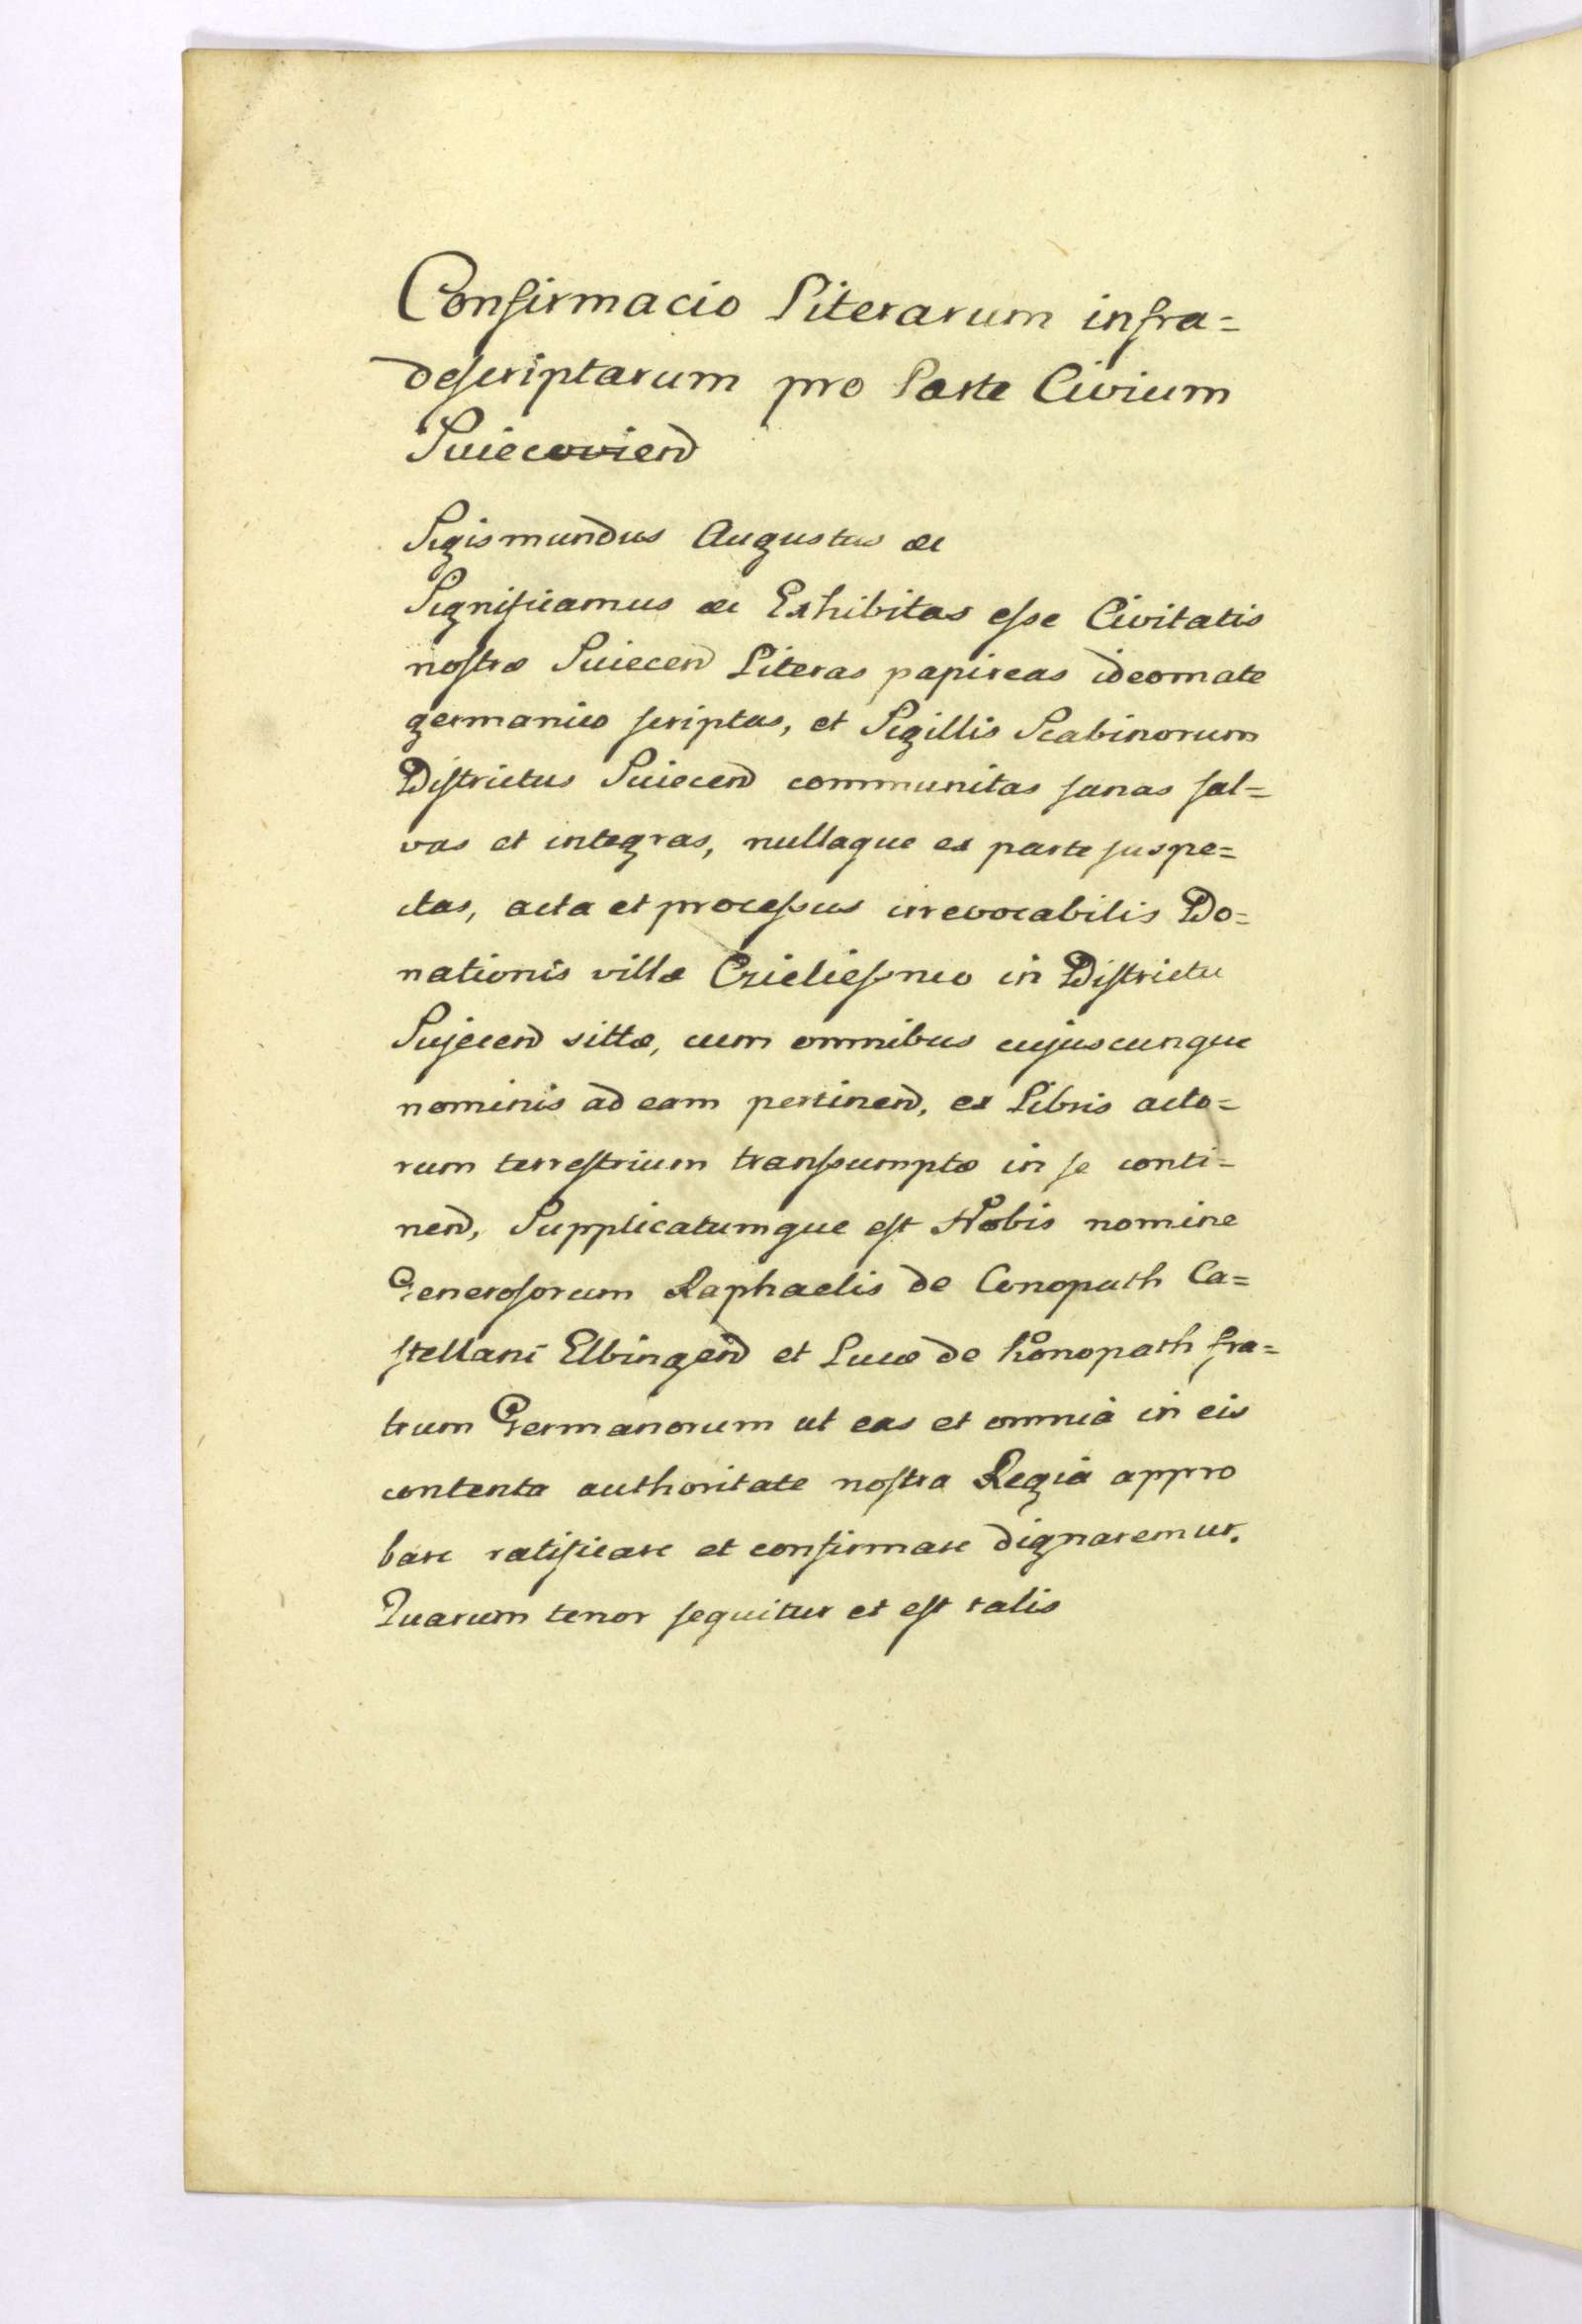 Confirmacio Literarum infra=
descriptarum pro Parte Civium
Suiecoviend
Sigismundus Augustus &c
Significamus &c Exhibitas esse Civitatis
nostræ Suiecend Literas papireas ideomate
germanico scriptas, et Sigillis Scabinorum
Districtus Suiecend communitas sanas sal=
vas et integras, nullaque ex parte suspe=
ctas, acta et processus irrevocabilis Do=
nationis villæ Czieliessneo in Districtu
Sujecend sittæ, cum omnibus cujuscunque
nominis ad eam pertinend, ex Libris acto=
rum terrestrium transsumptæ in se conti=
nend, Supplicatumque est Nobis nomine
Generosorum Raphaelis de Conopath Ca=
stellani Elbingend et Lucæ de Konopath fra=
trum Germanorum ut eas et omnia in eis
contenta authoritate nostra Regia appro
bare ratificare et confirmare dignaremur.
Quarum tenor sequitur et est talis